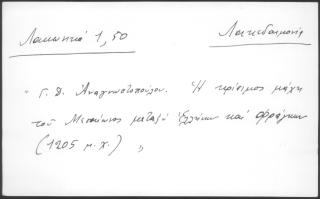 Λακωνικά 1, 50
Λακεδαιμονία
" Γ. Δ. Αναγνωστοπούλου. Η κρίσιμος μάχη
τοῦ μεταξύ Ἑλλήνων καί Φράγκων
(1205 μ.χ.) "